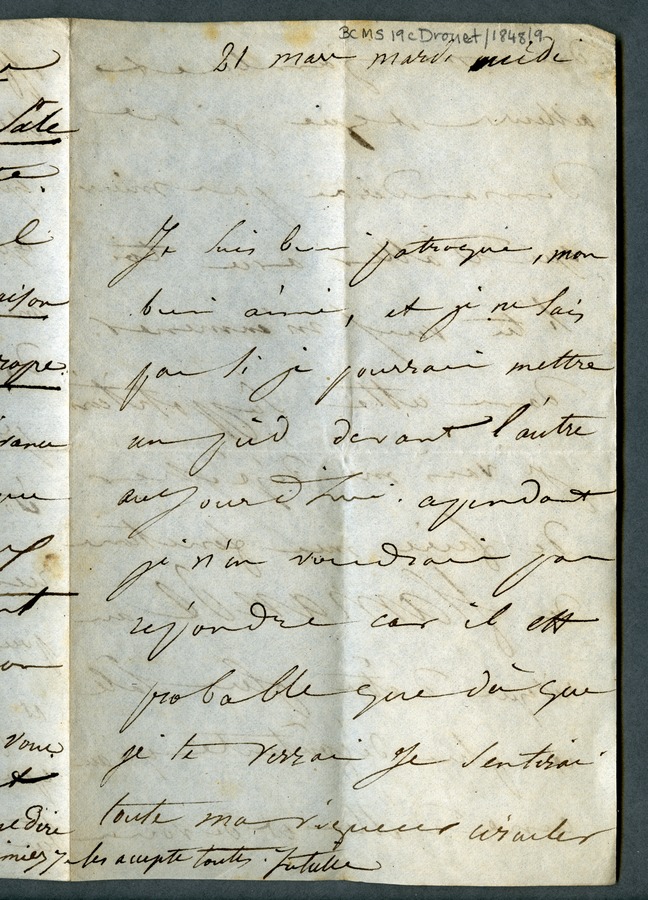 BC MS 19c Drouet/1848/9
21 mars mardi midi
Je suis bien patraque, mon
bien aimé, et je ne sais
pas si je pourrai mettre
un pied devant l'autre
aujourd'hui. cependant
je n'en voudrais pas
répondre car il est
probable que dès que
je te verrai je sentirai
toute ma vigueur circuler
les accepte toutes. Juliette